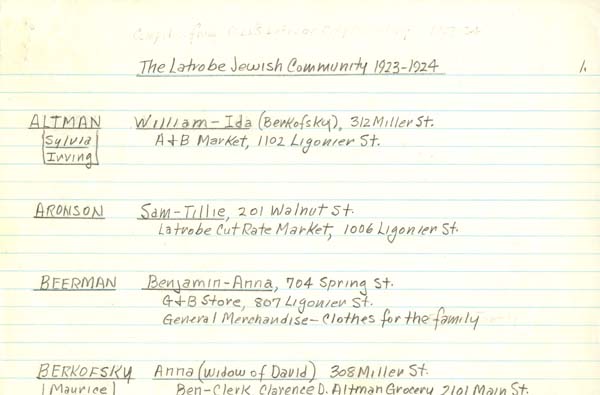 The Latrobe Jewish Community 1923-1924 1.
ALTMAN William-Ida (Berkofsky), 312 Miller St.
Sylvia A+B Market, 1102 Ligonier St.
Irving
ARONSON Sam-Tillie, 201 Walnut St.
Latrobe Cut Rate Market, 1006 Ligonier St.
BEERMAN Benjamin-Anna, 704 Spring St.
G+B Store, 807 Ligonier St.
General Merchandise-Clothes for the family
BERKOFSKY Anna (widow of David) 308 Miller St.
Maurice Ben-Clerk Clarence D. Altman Grocery 2101 Main St.